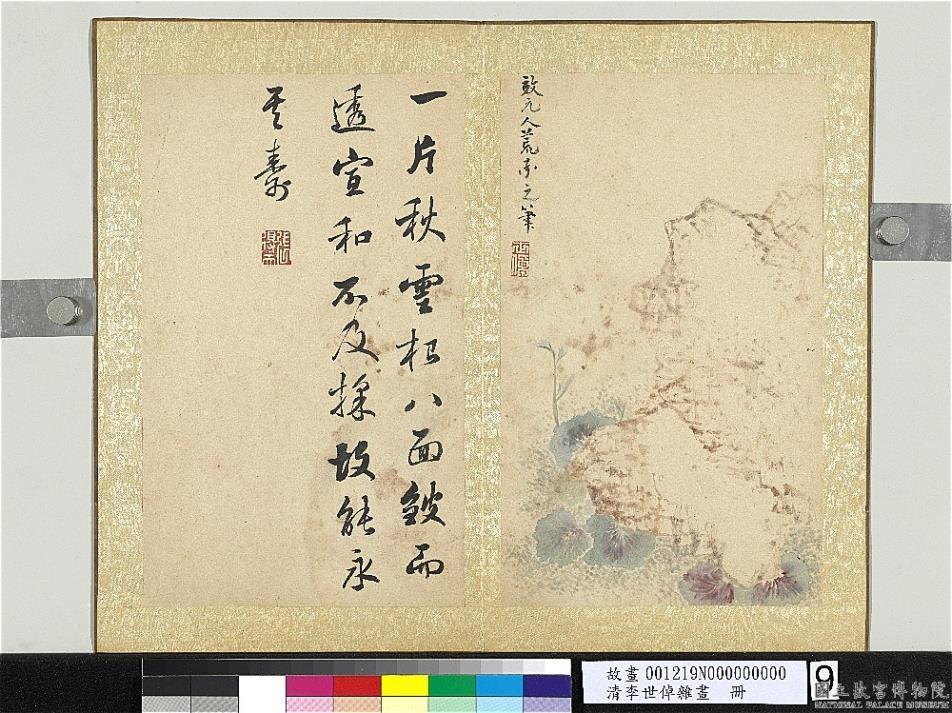 效元人荒率之筆
一片秋雲根八面皴而
透宣和不及採故能永
其壽
故畫 001219N000000000
清李世倬雜畫 冊
9
國立故宮博物院
NATIONAL PALACE MUSEUM